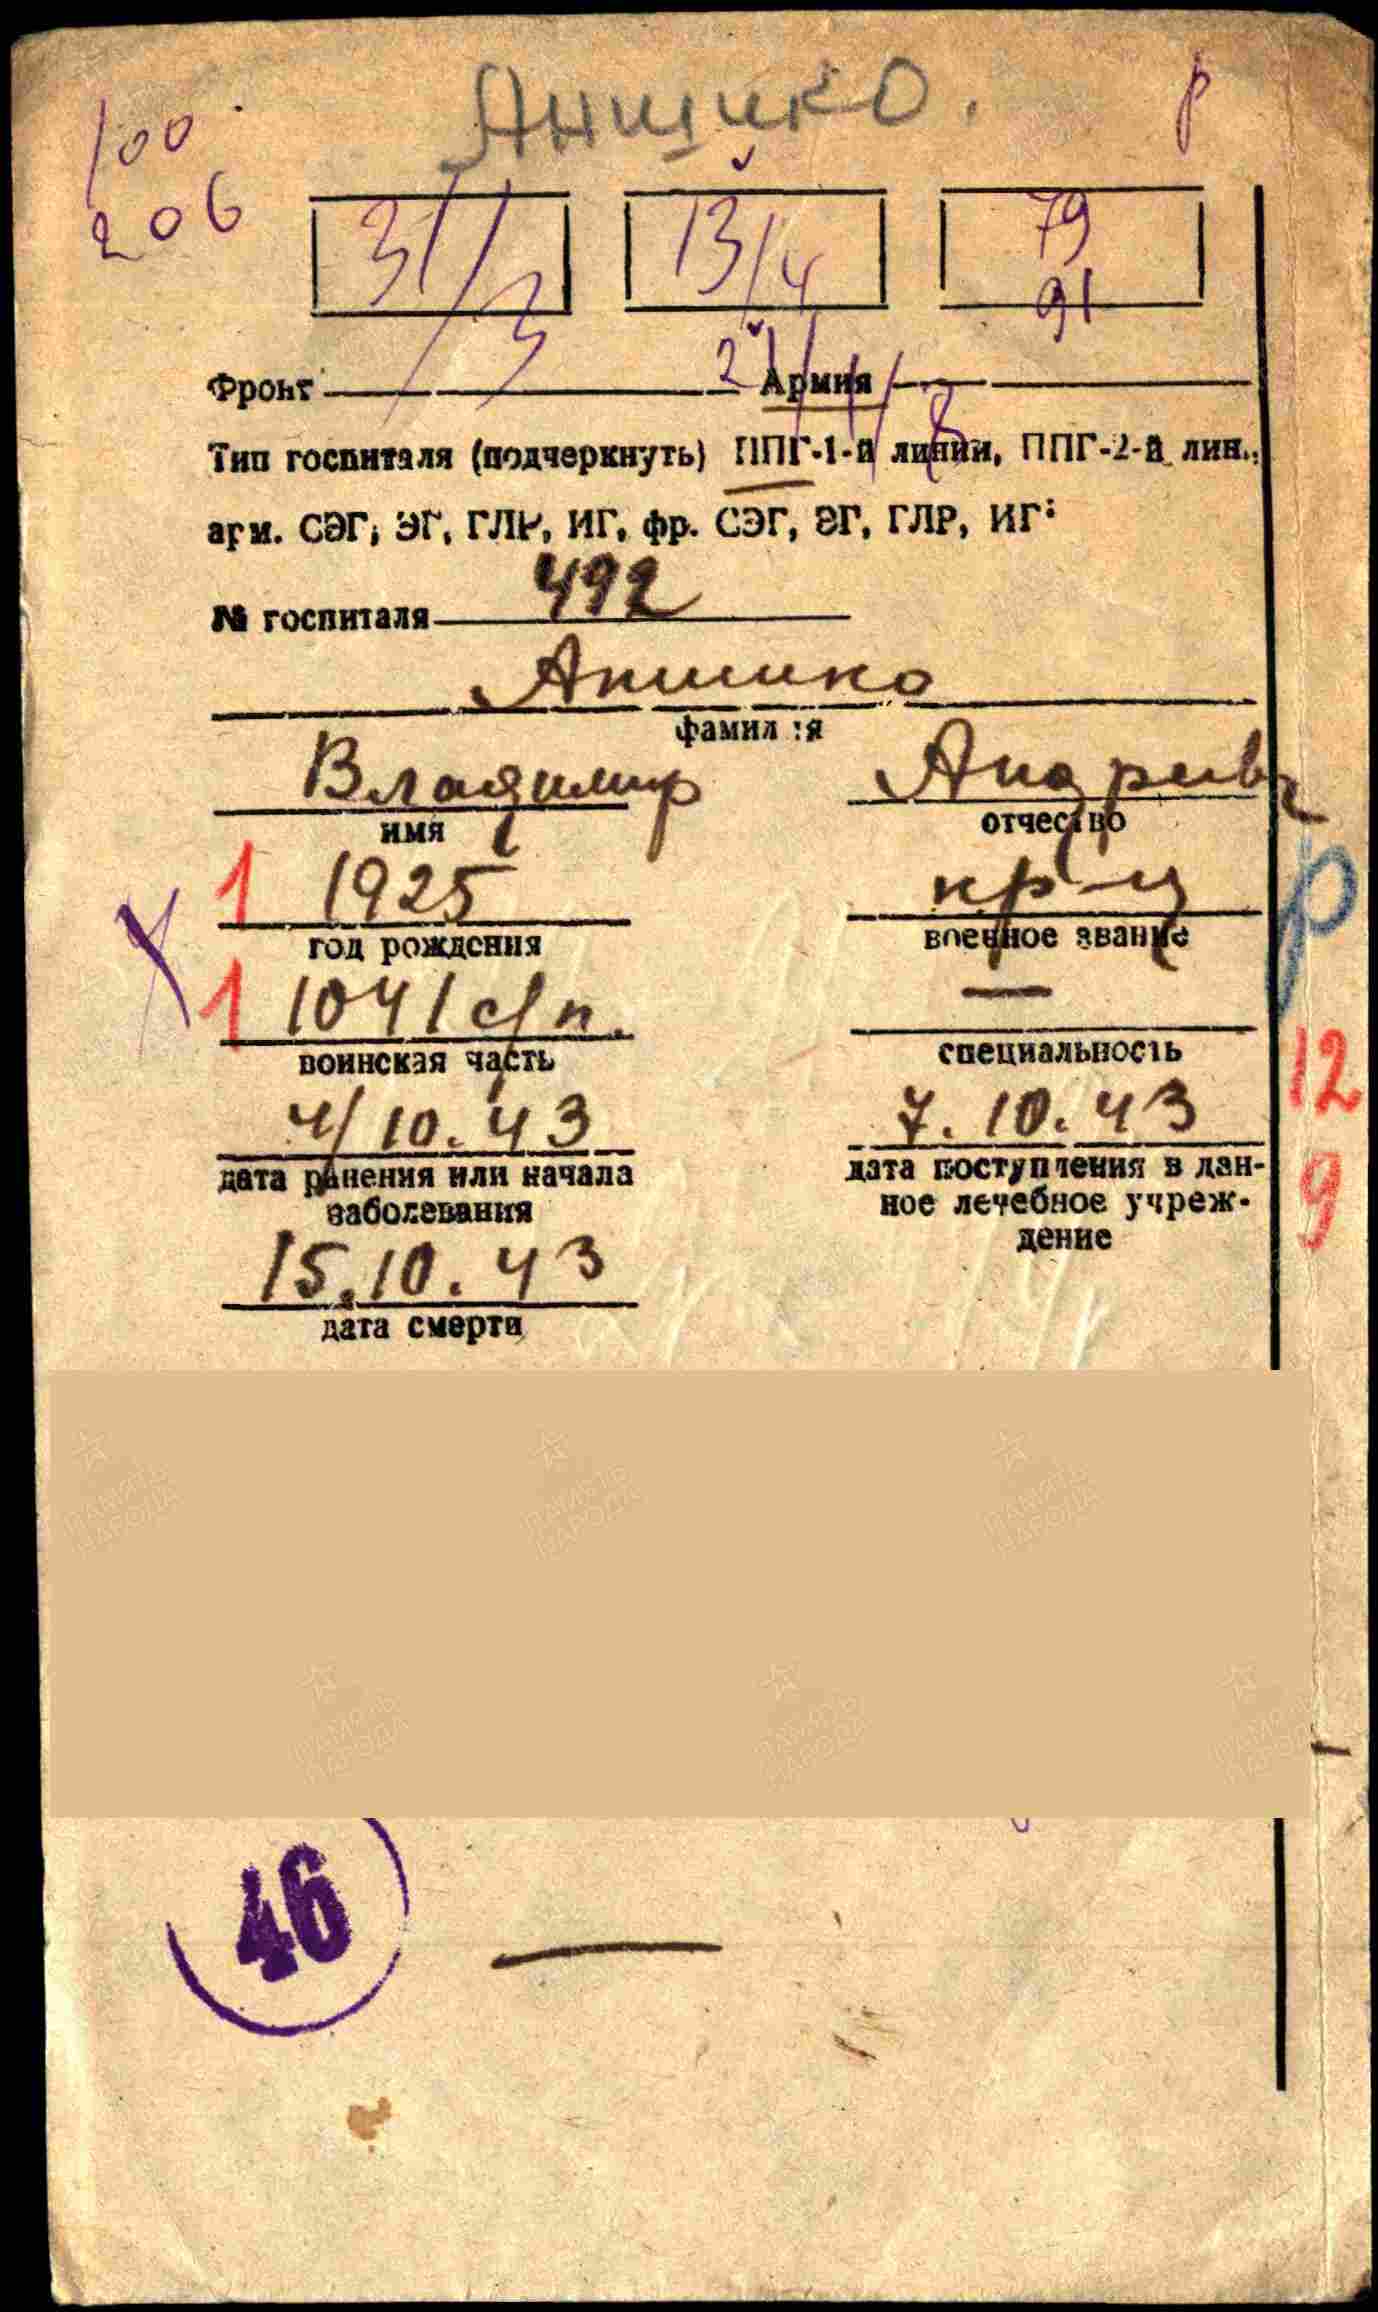 Анщико.
р
100
206
31/3
13/4
79
91
Фронт Армия
2
Тип госпиталя (подчеркнуть) ППГ-1-й линии, ППГ-2-й лин.,
арм. СЭГ, ЭГ, ГЛР, ИГ, фр. СЭГ, ЭГ, ГЛР, ИГ:
№ госпиталя 492
фамилия
Владимир
имя отчество
1 1925 кр-ц р
год рождения военное звание
1 1041 с/п. —
воинская часть специальность
12
4/10.43 7.10.43
дата ранения или начала дата поступления в дан-
заболевания ное лечебное учреж-
9
дение
15.10.43
дата смерти
ПАМЯТЬ НАРОДА ПАМЯТЬ НАРОДА ПАМЯТЬ НАРОДА
ПАМЯТЬ НАРОДА ПАМЯТЬ НАРОДА ПАМЯТЬ НАРОДА
46